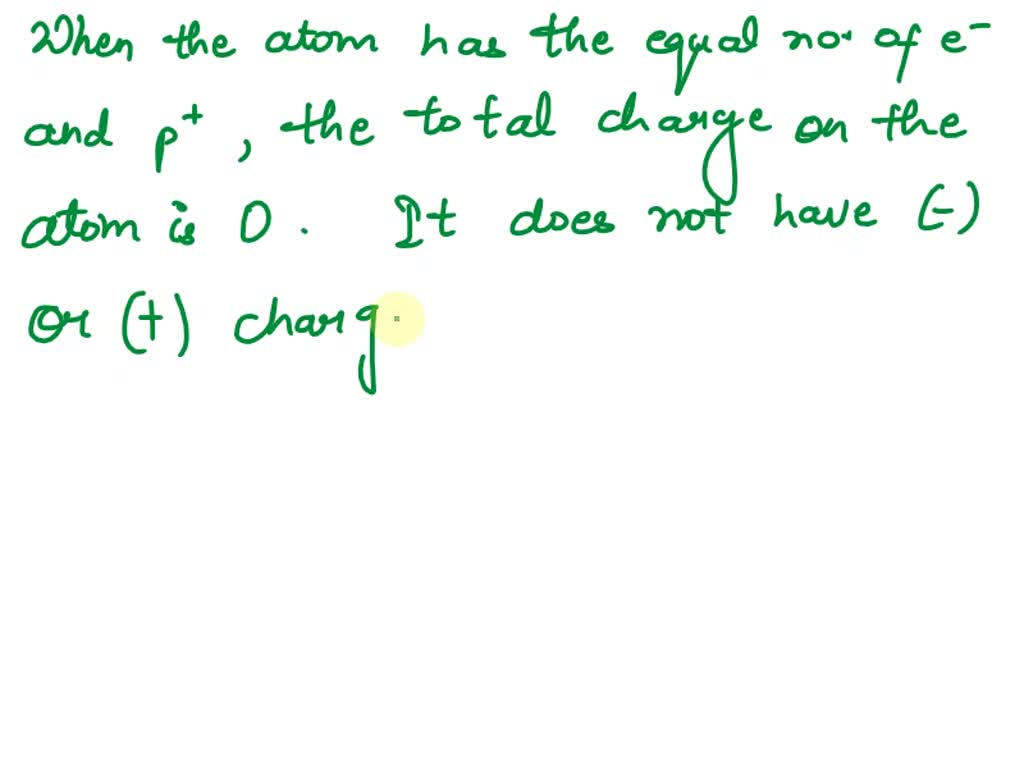 When the atom has the equal no. of e⁻
and p⁺, the total charge on the
atom is 0. It does not have (-)
or (+) charg